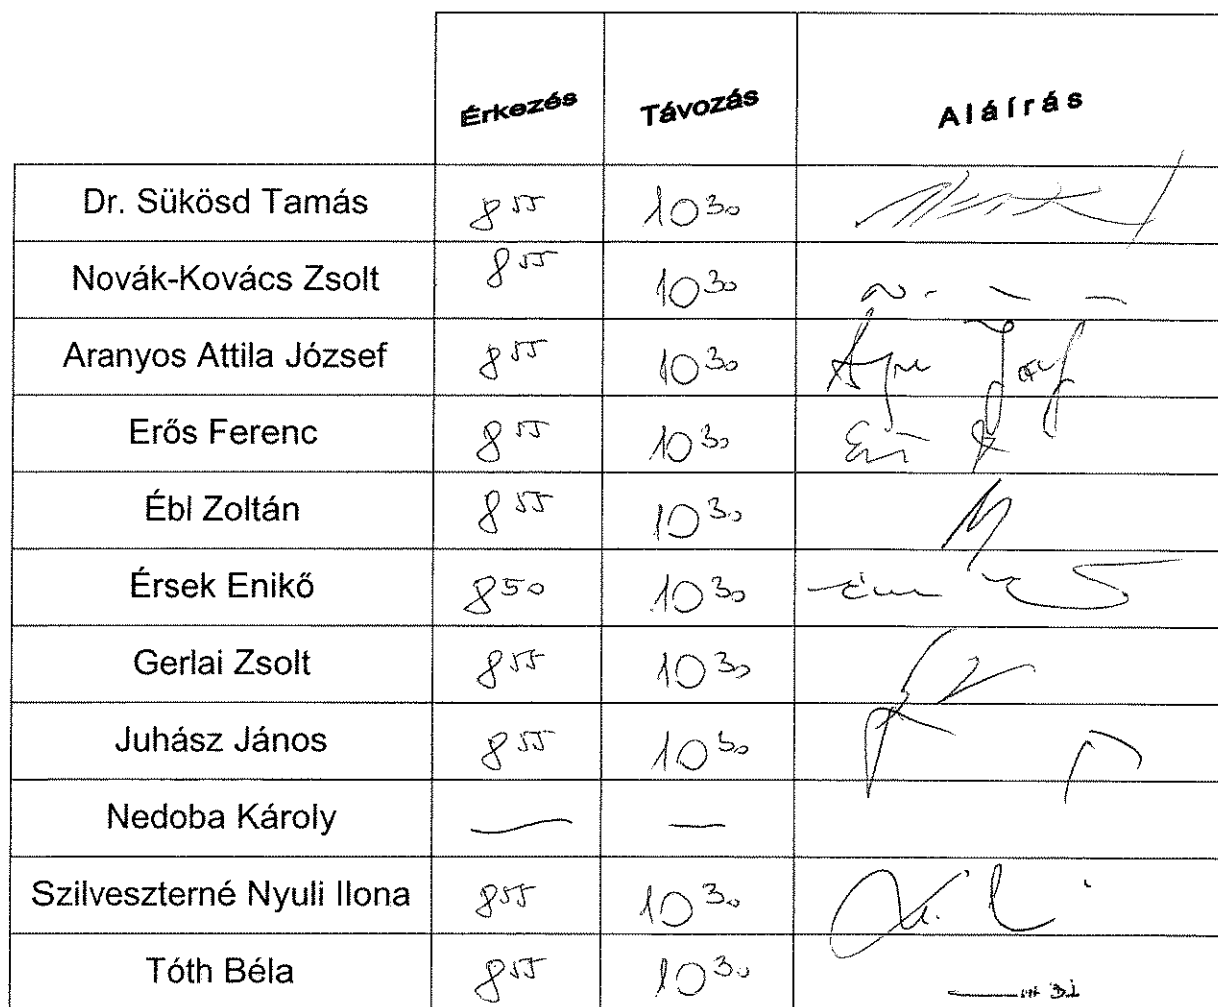 Érkezés Távozás Aláírás
Dr. Sükösd Tamás 8 55 10 30
Novák-Kovács Zsolt 8 55 10 30
Aranyos Attila József 8 55 10 30
Erős Ferenc 8 55 10 30
Ébl Zoltán 8 55 10 30
Érsek Enikő 8 50 10 30
Gerlai Zsolt 8 55 10 30
Juhász János 8 55 10 30
Nedoba Károly — —
Szilveszterné Nyuli Ilona 8 55 10 30
Tóth Béla 8 55 10 30